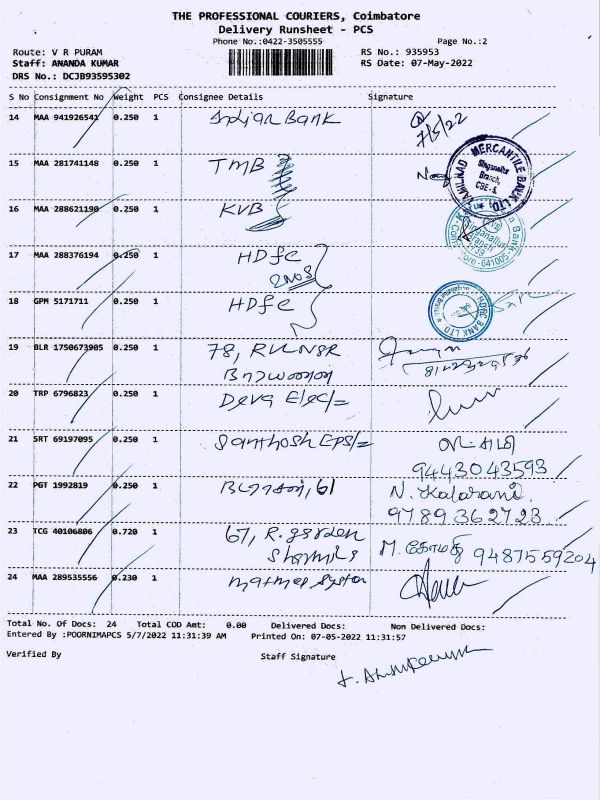 THE PROFESSIONAL COURIERS, Coimbatore
Delivery Runsheet - PCS
Phone No.:0422-3505555 Page No.:2
Route: V R PURAM RS No.: 935953
Staff: ANANDA KUMAR RS Date: 07-May-2022
DRS No.: DCJB93595302
S No Consignment No Weight PCS Consignee Details Signature
14 MAA 941926541 0.250 1 Indian Bank 7/5/22
15 MAA 281741148 0.250 1 TMB
TAMILNAD MERCANTILE BANK LTD
Singanallur
Branch
CBE-5.
16 MAA 288621190 0.250 1 KVB
Singanallur
Branch
641005
17 MAA 288376194 0.250 1 HDFC
2 Nos
18 GPM 5171711 0.250 1 HDFC
HDFC BANK LTD
19 BLR 1750673905 0.250 1 78,
20 TRP 6796823 0.250 1 Deva Elec/=
21 SRT 69197095 0.250 1 Santhosh Eps/=
9443043593
22 PGT 1992819 0.250 1 61 N. Kalarani
9789362723
23 TCG 40106806 0.720 1 67, R. garden M. கோமதி 9487559204
24 MAA 289535556 0.230 1
Total No. Of Docs: 24 Total COD Amt: 0.00 Delivered Docs: Non Delivered Docs:
Entered By :POORNIMAPCS 5/7/2022 11:31:39 AM Printed On: 07-05-2022 11:31:57
Verified By Staff Signature